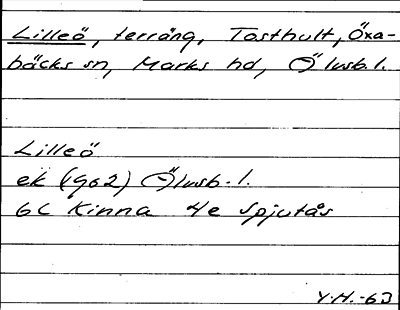 Lilleö, terräng, Tosthult, Öxa-
bäcks sn, Marks hd, Älvsb. l.
Lilleö
ek (1962) Älvsb. l.
6C Kinna 4e Spjutås
Y.H.-63